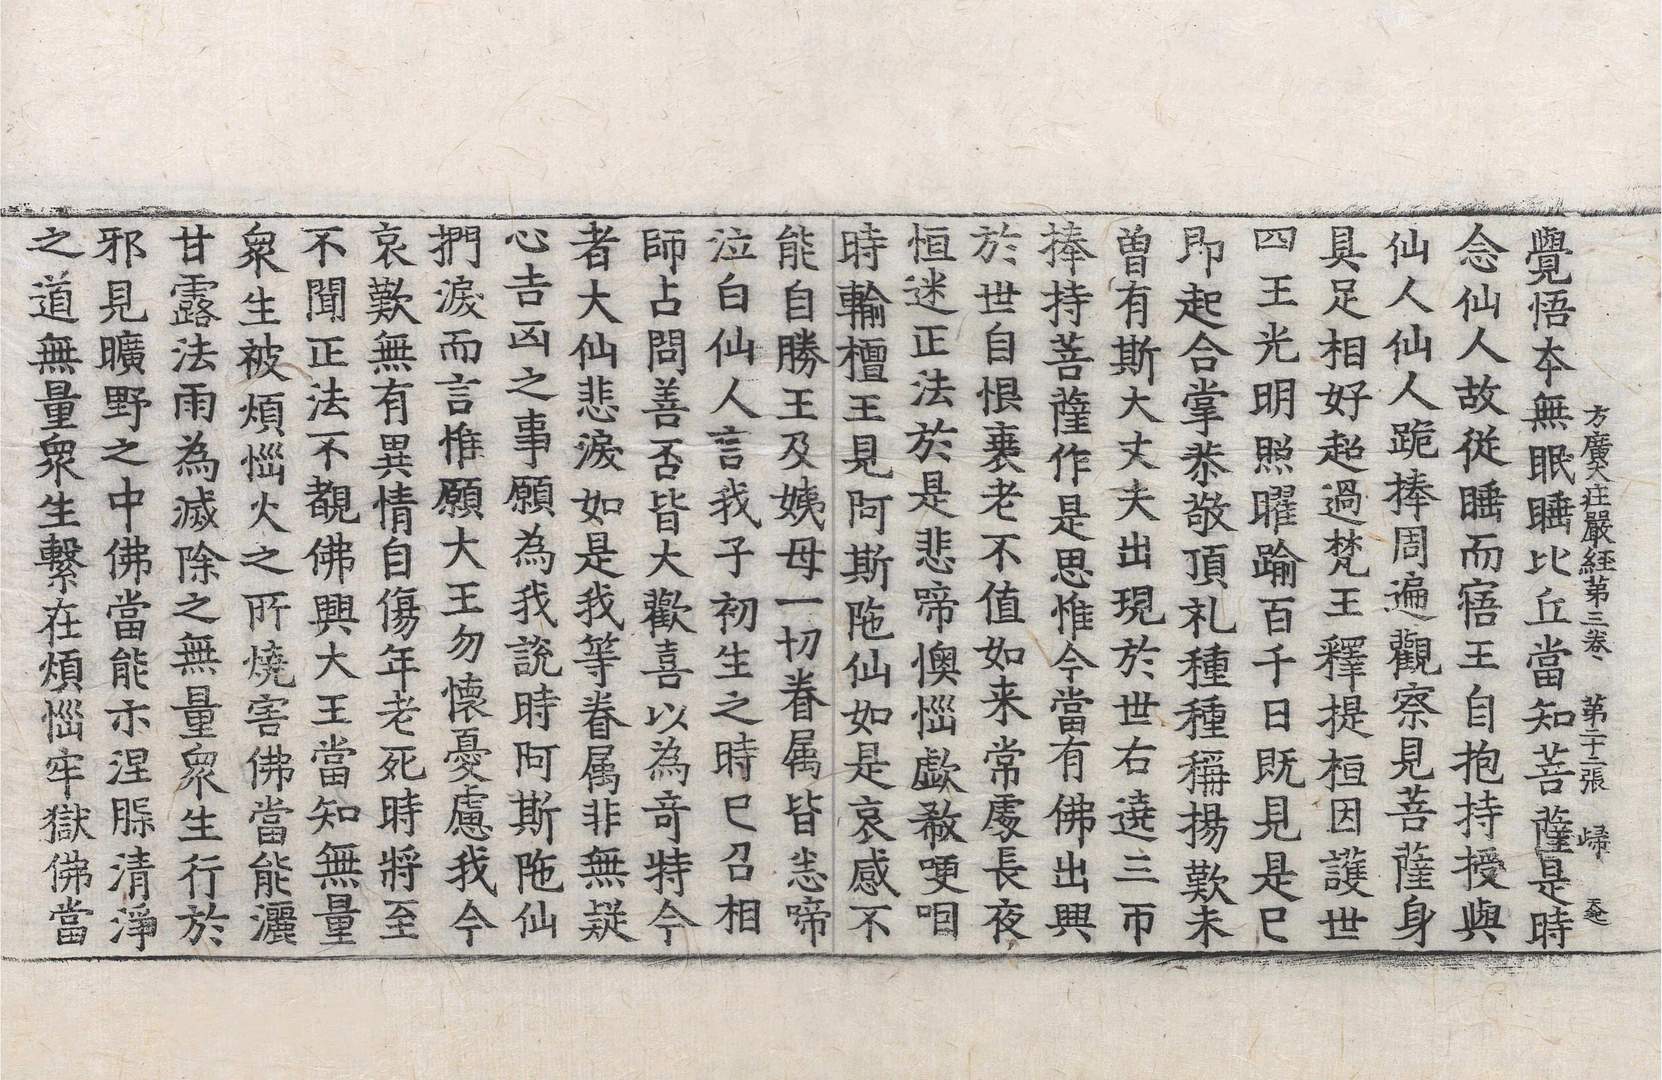 方廣大莊嚴經第三卷 第二十二張 歸
覺悟本無眠睡比丘當知菩薩是時
念仙人故從睡而寤王自抱持授與
仙人仙人跪捧周遍觀察見菩薩身
具足相好超過梵王釋提桓因護世
四王光明照曜踰百千日既見是已
即起合掌恭敬頂礼種種稱揚歎未
曽有斯大丈夫出現於世右遶三帀
捧持菩薩作是思惟今當有佛出興
於世自恨衰老不值如来常處長夜
恒迷正法於是悲啼懊惱歔欷哽咽
時輸檀王見阿斯陁仙如是哀感不
能自勝王及姨母一切眷属皆悲啼
泣白仙人言我子初生之時已召相
師占問善否皆大歡喜以為竒特今
者大仙悲淚如是我等眷属非無疑
心吉凶之事願為我説時阿斯陁仙
捫淚而言惟願大王勿懷憂慮我今
哀歎無有異情自傷年老死時將至
不聞正法不覩佛興大王當知無量
衆生被煩惱火之所燒害佛當能灑
甘露法雨為滅除之無量衆生行於
邪見曠野之中佛當能示涅槃清淨
之道無量衆生繫在煩惱牢獄佛當